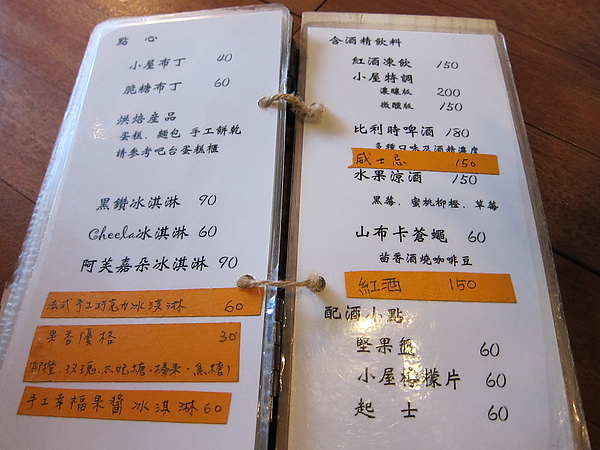 點 心
小屋布丁 40
脆糖布丁 60
烘焙產品
蛋糕、麵包 手工餅乾
請參考吧台蛋糕櫃
黑鑽冰淇淋 90
Cheela冰淇淋 60
阿芙嘉朵冰淇淋 90
法式手工巧克力冰淇淋 60
果香優格 30
柳橙、玫瑰、太妃糖、榛果、焦糖)
手工幸福果醬冰淇淋60
含酒精飲料
紅酒凍飲 150
小屋特調
濃釀版 200
微醺版 150
比利時啤酒 180
多種口味及酒精濃度
威士忌 150
水果涼酒 150
黑莓、蜜桃柳橙、草莓
山布卡蒼蠅 60
茴香酒燒咖啡豆
紅酒 150
配酒小點
堅果盤 60
小屋檸檬片 60
起 士 60